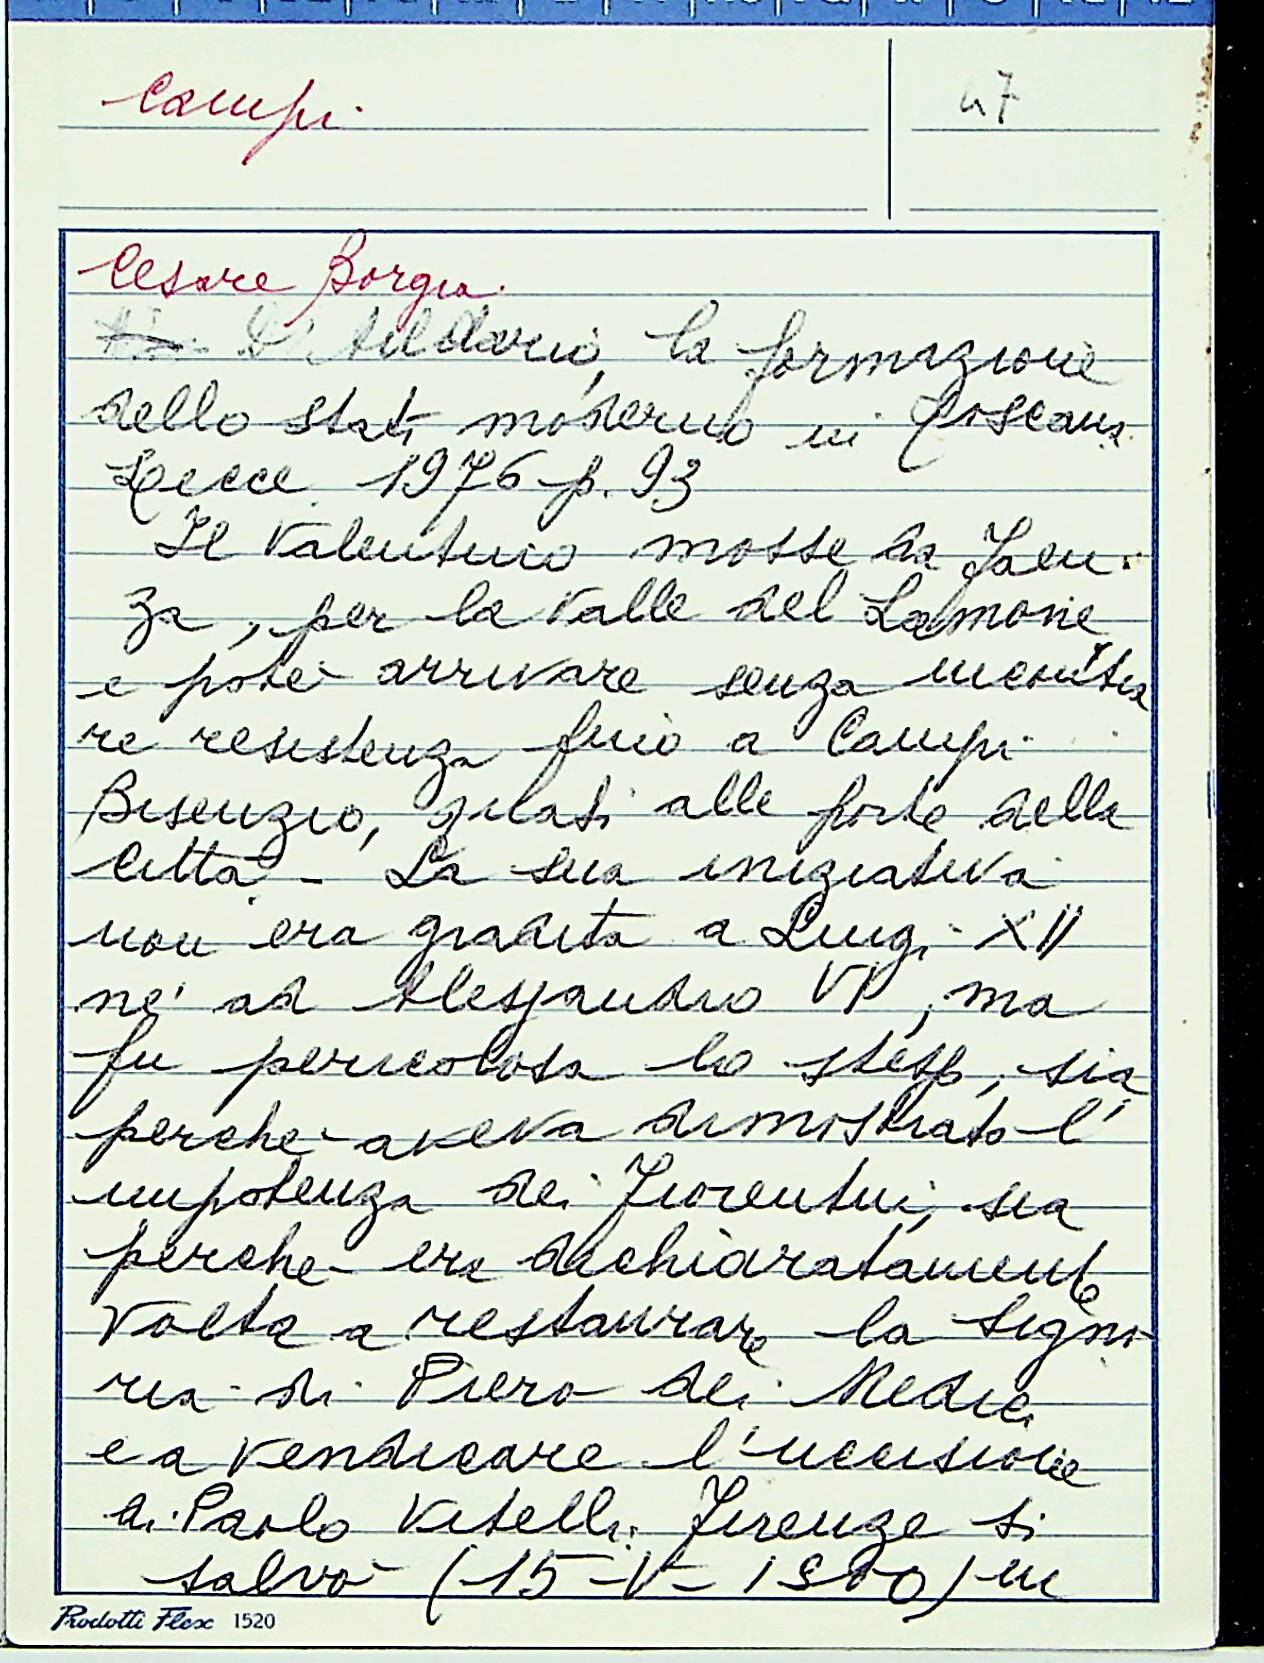 Campi
47
Cesare Borgia.
D'Addario, la formazione
dello stato moderno in Toscana
Lecce 1976 p. 93
Il Valentino mosse da Faen-
za, per la valle del Lamone
e poté arrivare senza incontra
re resistenza fino a Campi
Bisenzio, quasi alle porte della
città - La sua iniziativa
non era gradita a Luigi XII
né ad Alessandro VI, ma
fu pericolosa lo stesso, sia
perché aveva dimostrato l'
impotenza dei Fiorentini, sia
perché era dichiaratamente
volta a restaurare la Signo
ria di Piero dei Medici
e a vendicare l'uccisione
di Paolo Vitelli. Firenze si
salvò (15-V-1500) in
Prodotti Flex 1520